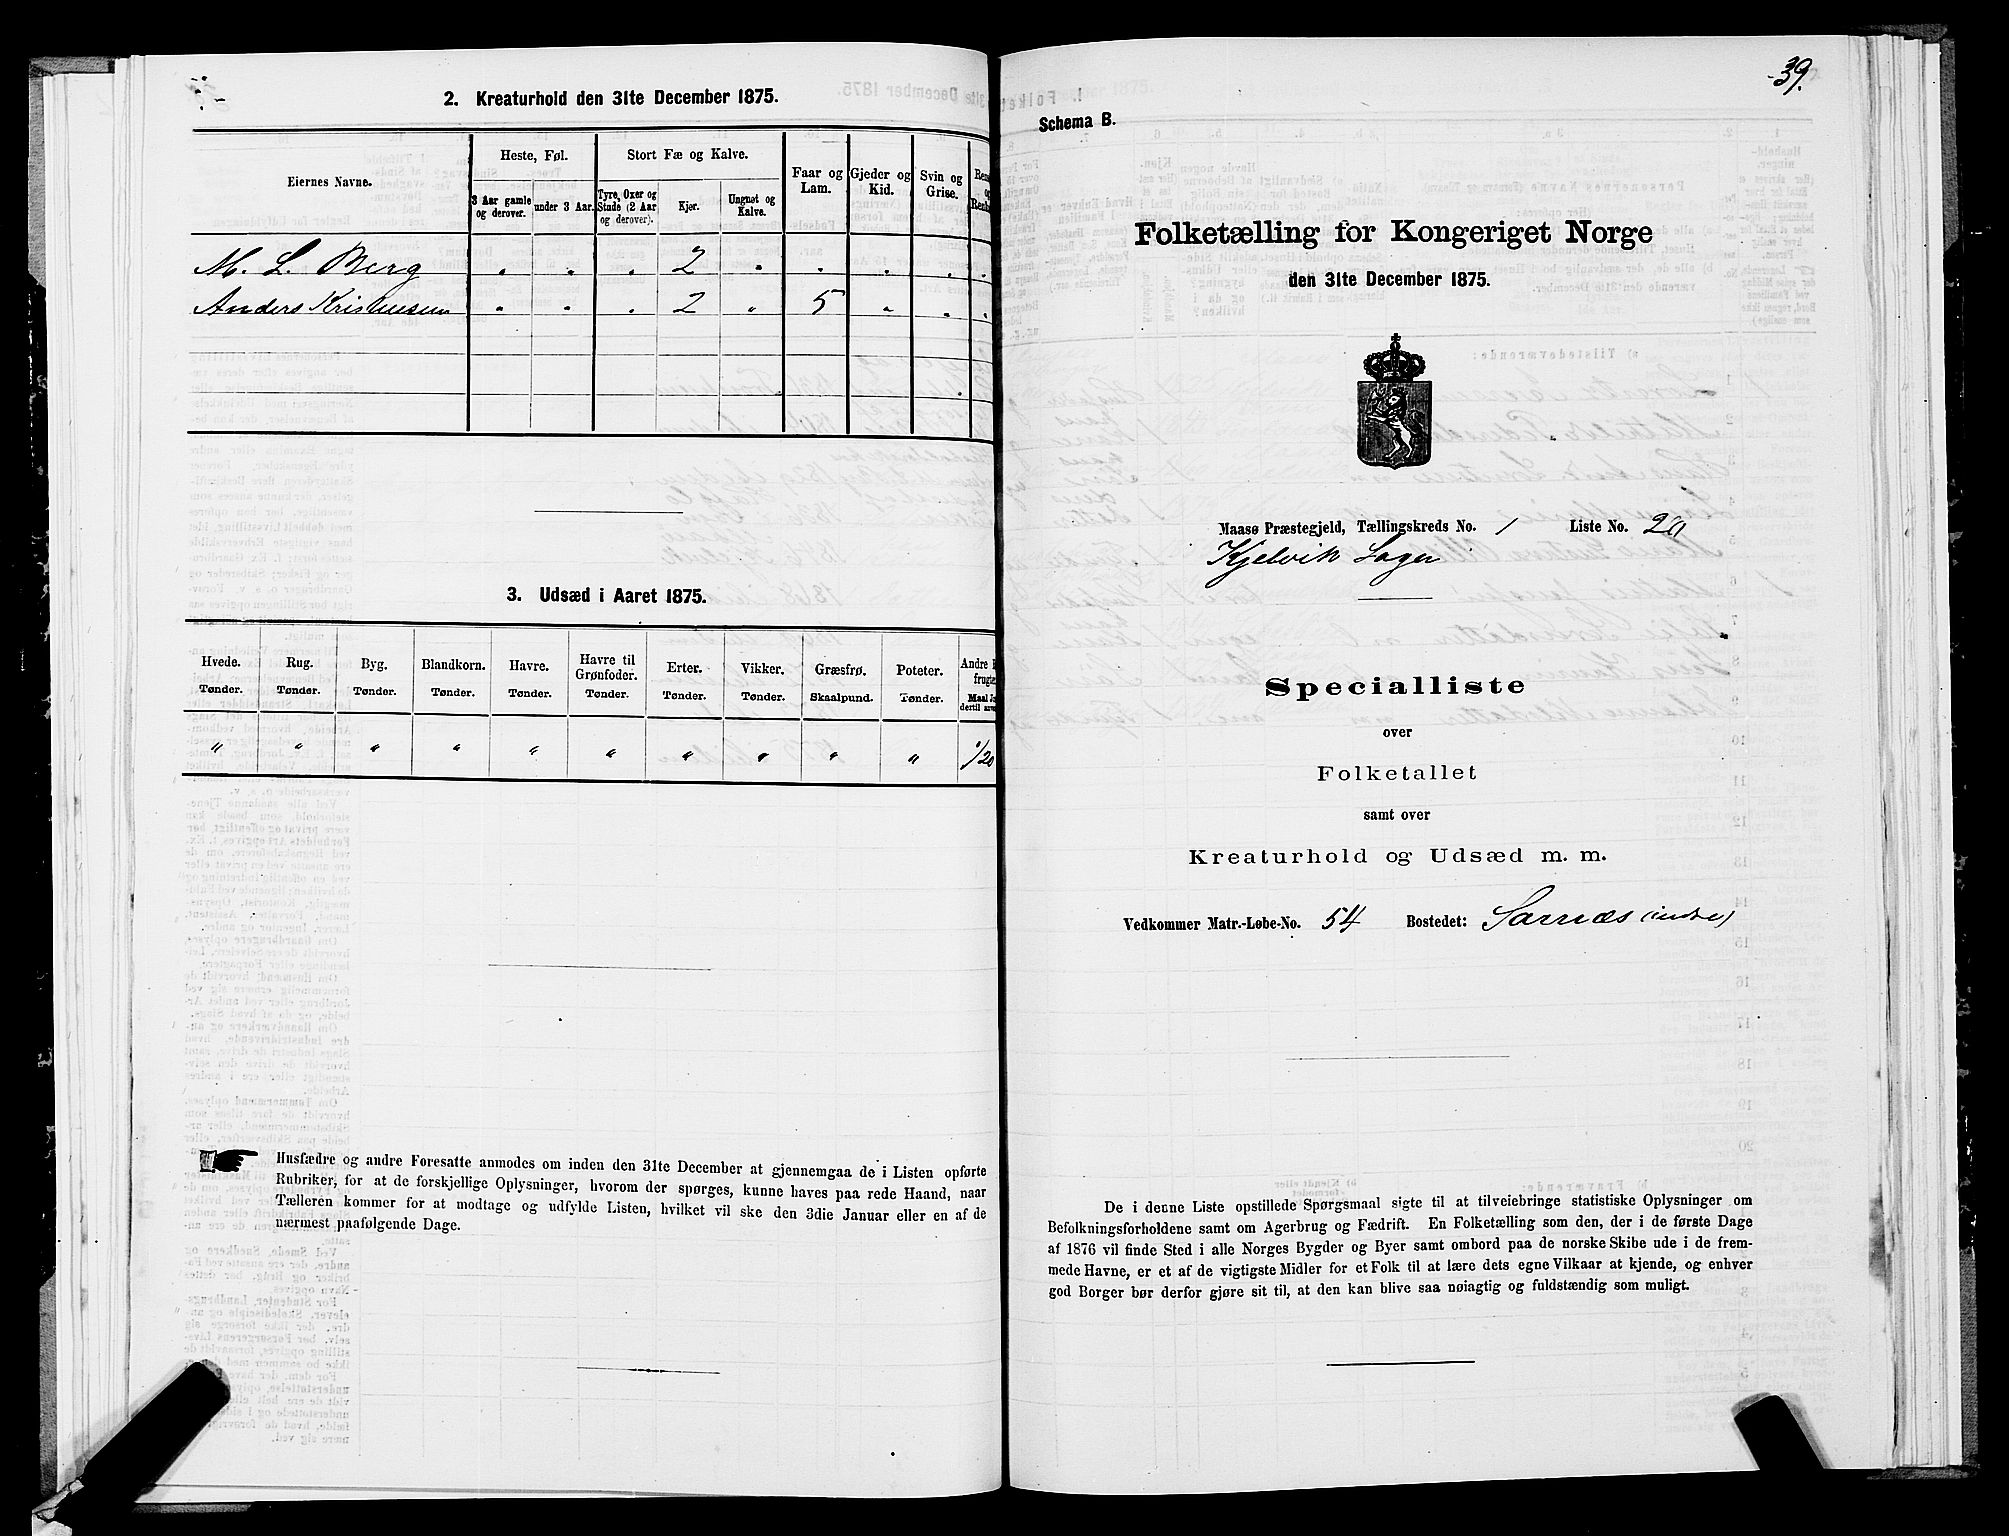 2. Kreaturhold den 31te December 1875.
Eiernes Navne.
Heste, Føl.
Stort Fæ og Kalve.
Faar og Lam.
Gjeder og Kid.
Svin og Grise.
3 Aar gamle og derover.
under 3 Aar.
Tyre, Oxer og Stude (2 Aar og derover).
Kjør.
Ungnøt og Kalve.
M. L. Berg " " " 2 " " " " "
Anders Kristensen " " " 2 " 5 " " "
3. Udsæd i Aaret 1875.
Hvede. Rug. Byg. Blandkorn. Havre. Havre til Grønfoder. Erter. Vikker. Græsfrø. Poteter. Andre
Tønder. Tønder. Tønder. Tønder. Tønder. Tønder. Tønder. Tønder. Skaalpund. Tønder. Maal
" " " " " " " " " " 1/20
Husfædre og andre Foresatte anmodes om inden den 31te December at gjennemgaa de i Listen opførte
Rubriker, for at de forskjellige Oplysninger, hvorom der spørges, kunne haves paa rede Haand, naar
Tælleren kommer for at modtage og udfylde Listen, hvilket vil ske den 3die Januar eller en af de
nærmest paafølgende Dage.
39.
Schema B.
Folketælling for Kongeriget Norge
den 31te December 1875.
Maasø Præstegjeld, Tællingskreds No. 1 Liste No. 20
Kjelvik Sogn
Specialliste
over
Folketallet
samt over
Kreaturhold og Udsæd m. m.
Vedkommer Matr.-Løbe-No. 54 Bostedet: Sarnæs (indre)
De i denne Liste opstillede Spørgsmaal sigte til at tilveiebringe statistiske Oplysninger om
Befolkningsforholdene samt om Agerbrug og Fædrift. En Folketælling som den, der i de første Dage
af 1876 vil finde Sted i alle Norges Bygder og Byer samt ombord paa de norske Skibe ude i de frem-
mede Havne, er et af de vigtigste Midler for et Folk til at lære dets egne Vilkaar at kjende, og enhver
god Borger bør derfor gjøre sit til, at den kan blive saa nøiagtig og fuldstændig som muligt.